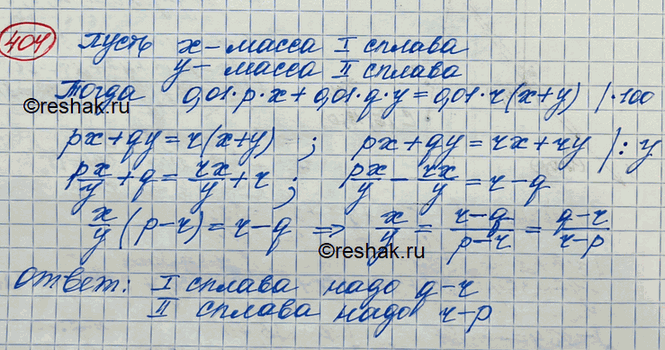 404 Пусть x - масса I сплава
y - масса II сплава
Тогда 0,01·p·x + 0,01·q·y = 0,01·r(x+y) |·100
©reshak.ru
px+qy=r(x+y) ; px+qy=rx+ry |:y
px/y + q = rx/y + r ; px/y - rx/y = r-q
x/y (p-r) = r-q ⇒ x/y = (r-q)/(p-r) = (q-r)/(r-p)
©reshak.ru
Ответ: I сплава надо q-r
II сплава надо r-p